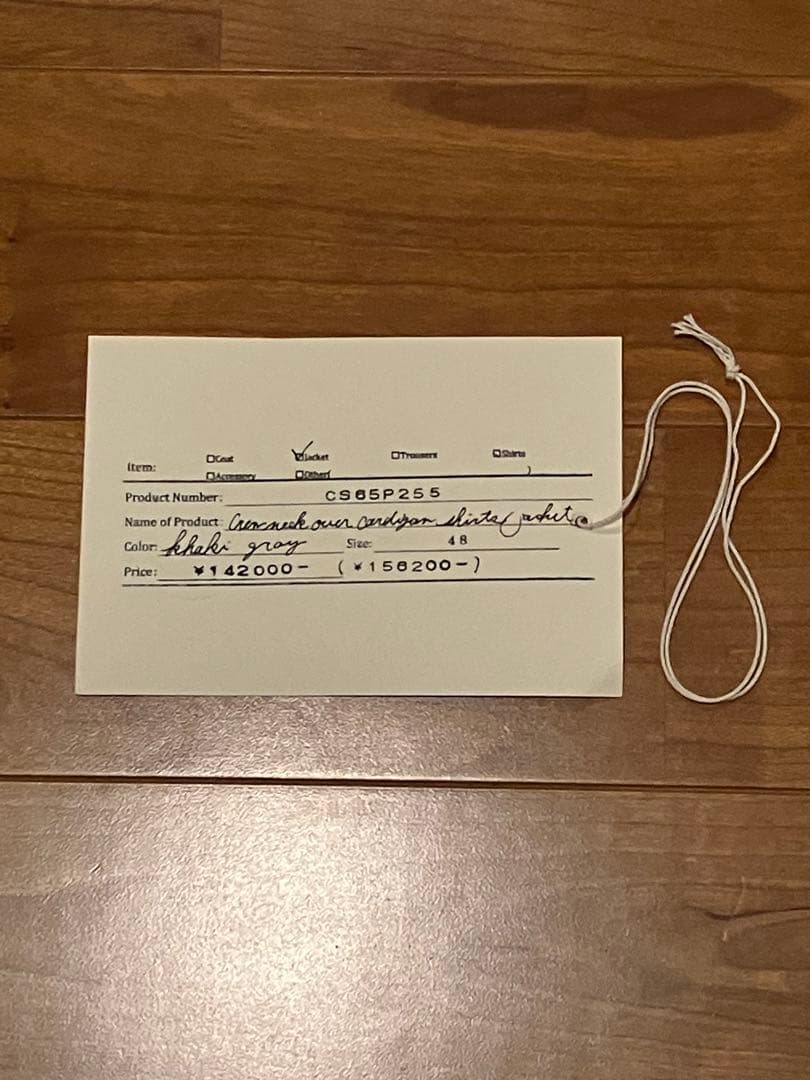 ☐Coat ☑Jacket ☐Trousers ☐Shirts
Item:
☐Accessory ☐Other( )
Product Number: CS65P255
Name of Product: Crew neck over cardigan shirts jacket
Color: khaki gray Size: 48
Price: ¥142000- (¥156200-)